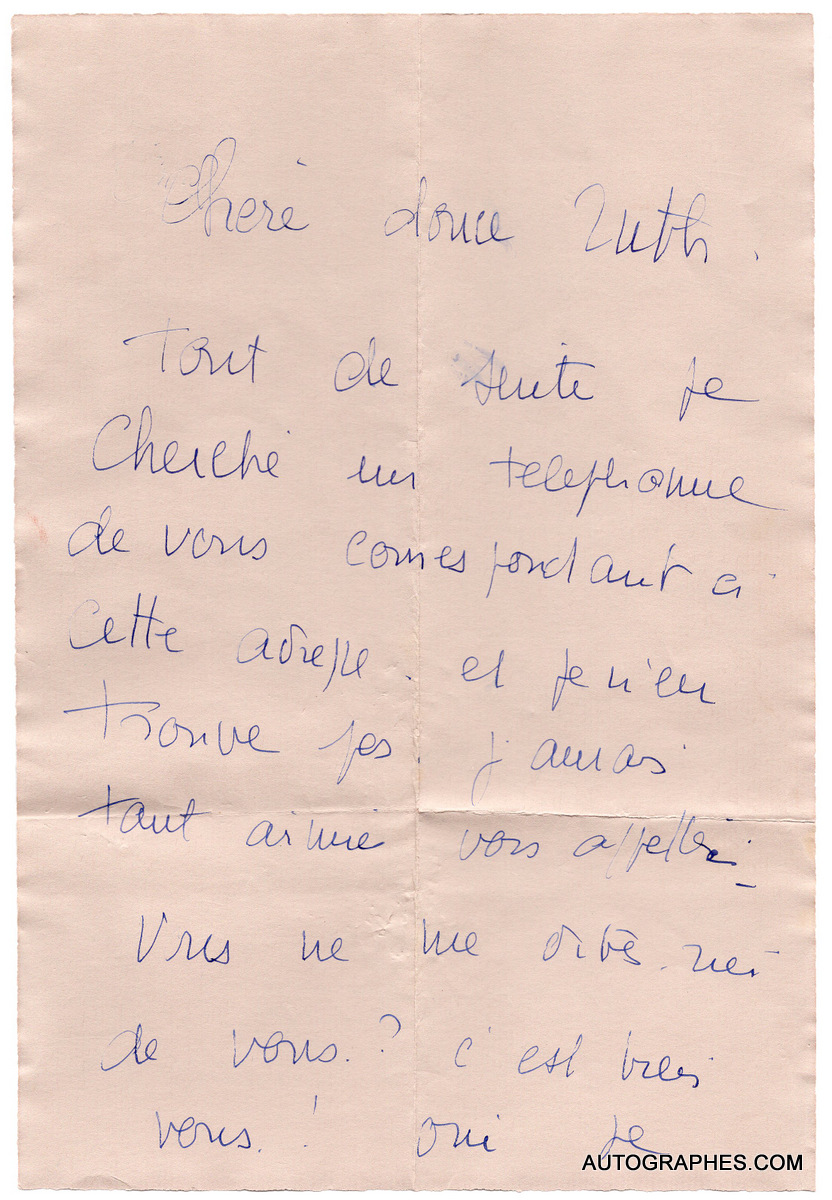 Cheré douce Ruth.
Tout de suite je
cherche un telephone
de vous correspondant à
cette adresse. et je n'en
trouve pas. j'aurais
tant aimé vous appeller_
Vous ne me dites rien
de vous.? c'est bien
vous.! oui je
AUTOGRAPHES.COM